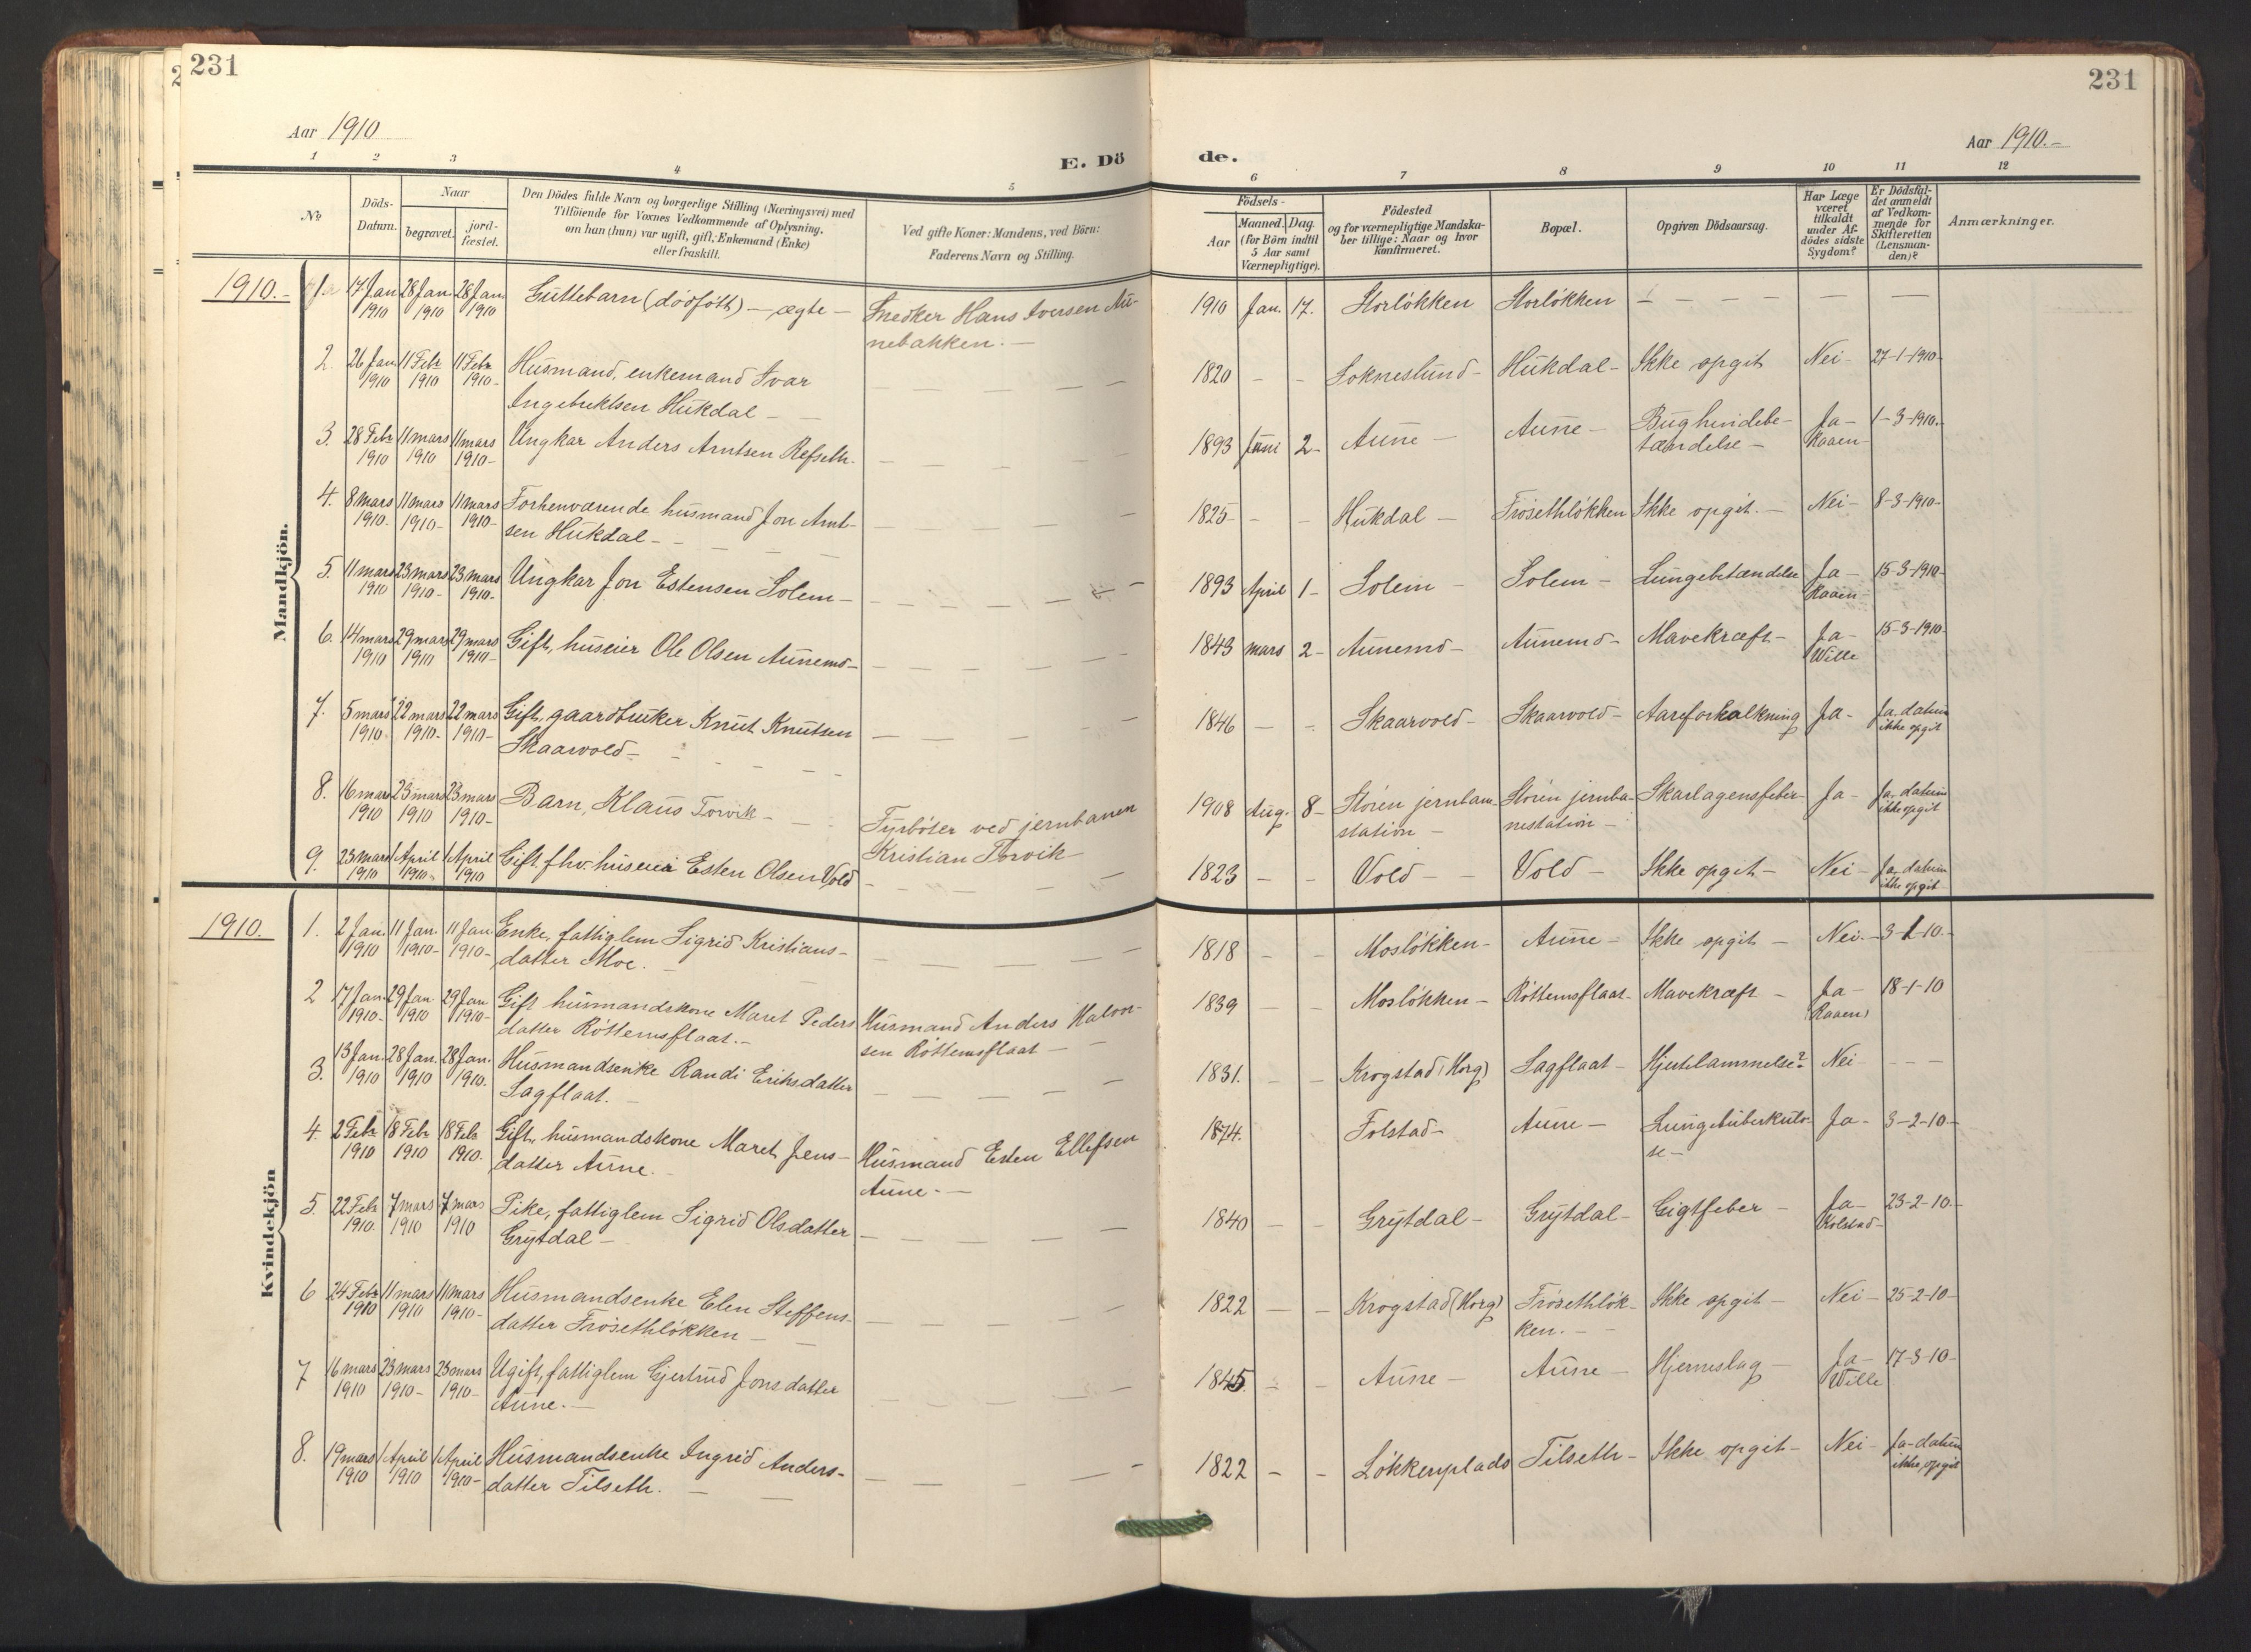 231
231
Aar 1910
Aar 1910.-
1 2 3 4 5 6 7 8 9 10 11 12
E. Dö de.
No
Döds-Datum.
Naar
begravet.
jord-fæstet.
Den Dödes fulde Navn og borgerlige Stilling (Næringsvei) med
Tilföiende for Voxnes Vedkommende af Oplysning,
om han (hun) var ugift, gift, Enkemand (Enke)
eller fraskilt.
Ved gifte Koner: Mandens, ved Börn:
Faderens Navn og Stilling.
Födsels-
Aar
Maaned. Dag.
(for Börn indtil
5 Aar samt
Værnepligtige).
Födested
og for værnepligtige Mandska-
ber tillige: Naar og hvor
konfirmeret.
Bopæl.
Opgiven Dödsaarsag.
Har Læge
været
tilkaldt
under Af-
dödes sidste
Sygdom?
Er Dödsfal-
det anmeldt
af Vedkom-
mende for
Skifteretten
(Lensman-
den)?
Anmærkninger.
Mandkjön.
1910.-
1. 17 Jan 1910 28 Jan. 1910 28 Jan. 1910 Guttebarn (dödfött) - ægte - Snedker Hans Iversen Au-
nebakken. - 1910 Jan. 17. Storløkken Storløkken - - - - - -
2. 26 Jan 1910 11 Febr 1910 11 Febr 1910- Husmand, enkemand Ivar
Ingebrektsen Hukdal - 1820 - - Sokneslund - Hukdal - Ikke opgit Nei - 27-1-1910-
3. 28 Febr 1910 11 mars 1910 11 mars 1910- Ungkar Anders Arntsen Refseth. 1893 Juni 2- Aune - Aune - Bughindebe-
tændelse - Ja - Kaaen - 1-3-1910.
4. 8 mars 1910- 11 mars 1910- 11 mars 1910- Forhenværende husmand Jon Arnt-
sen Hukdal - 1825 - - Hukdal - Frøsethløkken Ikke opgit. - Nei - 8-3-1910-
5. 11 mars 1910 23 mars 1910- 23 mars 1910- Ungkar Jon Estensen Solem - 1893 April 1- Solem - Solem - Lungebetændelse Ja - Kaaen - 15-3-1910-
6. 14 mars 1910 29 mars 1910 29 mars 1910- Gift, huseier Ole Olsen Aunemo - 1843 mars 2- Aunemo - Aunemo - Mavekræft - Ja - Wille 15-3-1910-
7. 5 mars 1910 22 mars 1910- 22 mars 1910- Gift, gaardbruker Knut Knutsen
Skaarvold - 1846 - - Skaarvold - Skaarvold - Aareforkalkning Ja - Ja. datum
ikke opgit
8. 16 mars 1910 23 mars 1910 23 mars 1910- Barn, Klaus Torvik - Fyrbøter ved jernbanen
Kristian Torvik - 1908 Aug. 8- Støren jernbane
station - Støren jernba-
nestation - Skarlagensfeber - Ja - Ja, datum
ikke opgit
9. 23 mars 1910 1 April 1910- 1 April 1910 Gift fhv. huseier Esten Olsen Vold 1823 - - Vold - Vold - Ikke opgit - Nei - Ja - datum
ikke opgit -
Kvindekjön
1910.
1. 2 Jan. 1910 11 Jan. 1910- 11 Jan 1910- Enke, fattiglem Sigrid Kristians-
datter Moe. - 1818 - - Mosløkken - Aune - Ikke opgit - Nei. - 3-1-10.-
2 17 Jan. 1910- 29 Jan. 1910 29 Jan 1910- Gift husmandskone Maret Peders
datter Røttemsflaat. - Husmand Anders Halvor-
sen Røttemsflaat - 1839 - - Mosløkken - Røttemsflaat - Mavekræft - Ja - (Kaaen) 18-1-10
3. 13 Jan. 1910 28 Jan. 1910 28 Jan. 1910. Husmandsenke Randi Eriksdatter
Sagflaat. - 1831. - - Krogstad (Horg) Sagflaat - Hjertelammelse? Nei - - -
4. 2 Febr 1910 18 Febr 1910 18 Febr 1910. Gift, husmandskone Maret Jens-
datter Aune. - Husmand Esten Ellefsen
Aune. - 1874. Folstad - Aune - Lungetuberkulo-
se - Ja - 3-2-10-
5. 22 Febr 1910. 7 mars 1910 7 mars 1910 Pike, fattiglem Sigrid Olsdatter
Grytdal - 1840 - - Grytdal - Grytdal - Gigtfeber - Ja - Kolstad - 23-2-10.-
6 24 Febr 1910 11 mars 1910 11 mars 1910- Husmandsenke Elen Steffens-
datter Frøsethløkken - 1822 - - Krogstad (Horg) Frøsethløk-
ken. - Ikke opgit - Nei - 25-2-10-
7 16 mars 1910 23 mars 1910- 23 mars 1910- Ugift, fattiglem Gjertrud Jonsdatter
Aune. - 1845. - - Aune - Aune - Hjerneslag - Ja - Wille 17-3-10-
8. 19 mars 1910 1 April 1910 1 April 1910- Husmandsenke Ingrid Anders-
datter Tilseth. - 1822 - - Løkkenplads Tilseth - Ikke opgit - Nei - Ja - datum
ikke opgit